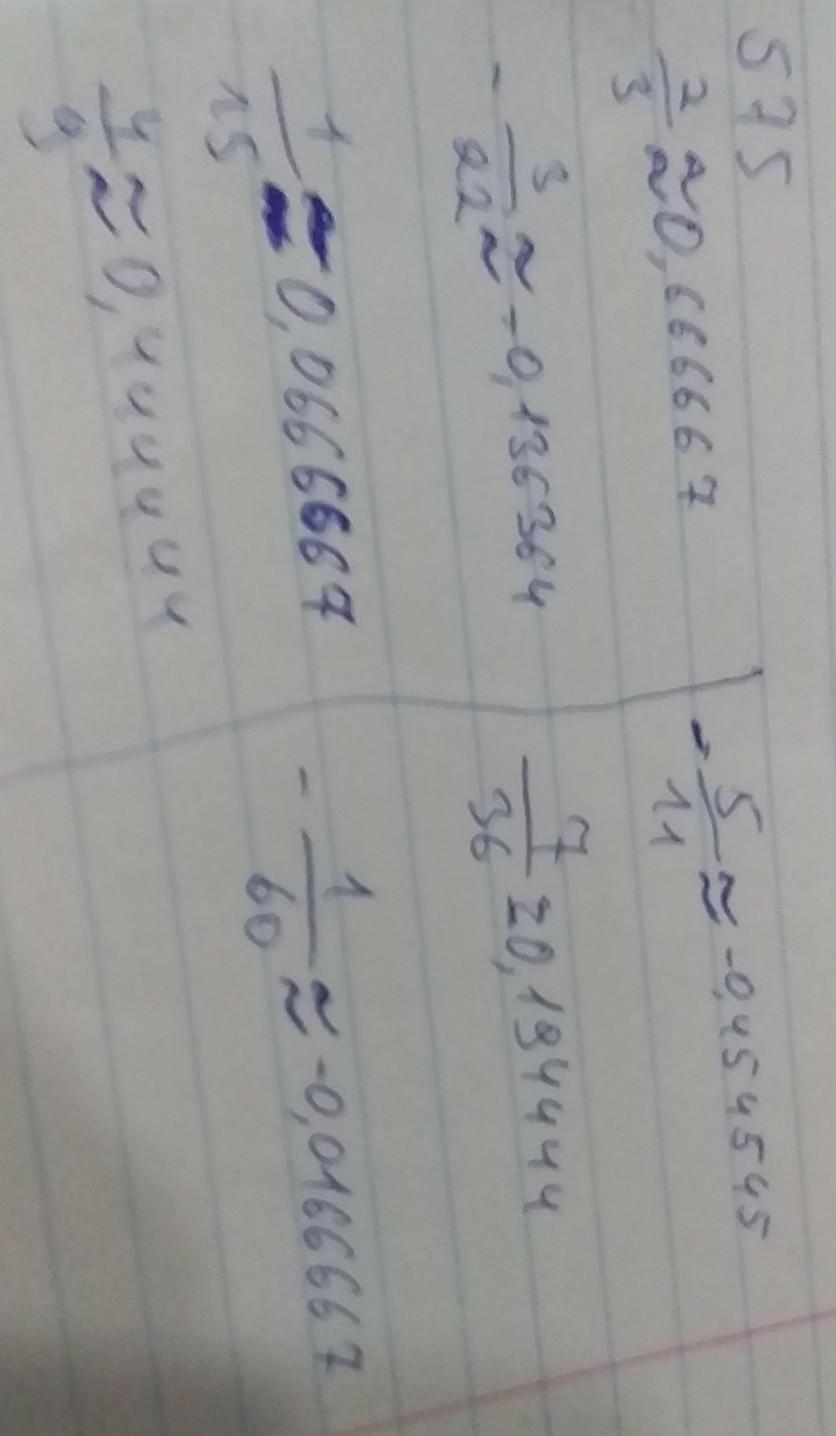 575
2/3 ≈ 0,666667
- 3/22 ≈ -0,136364
1/15 ≈ 0,0666667
4/9 ≈ 0,444444
- 5/11 ≈ -0,454545
7/36 ≈ 0,194444
- 1/60 ≈ -0,0166667